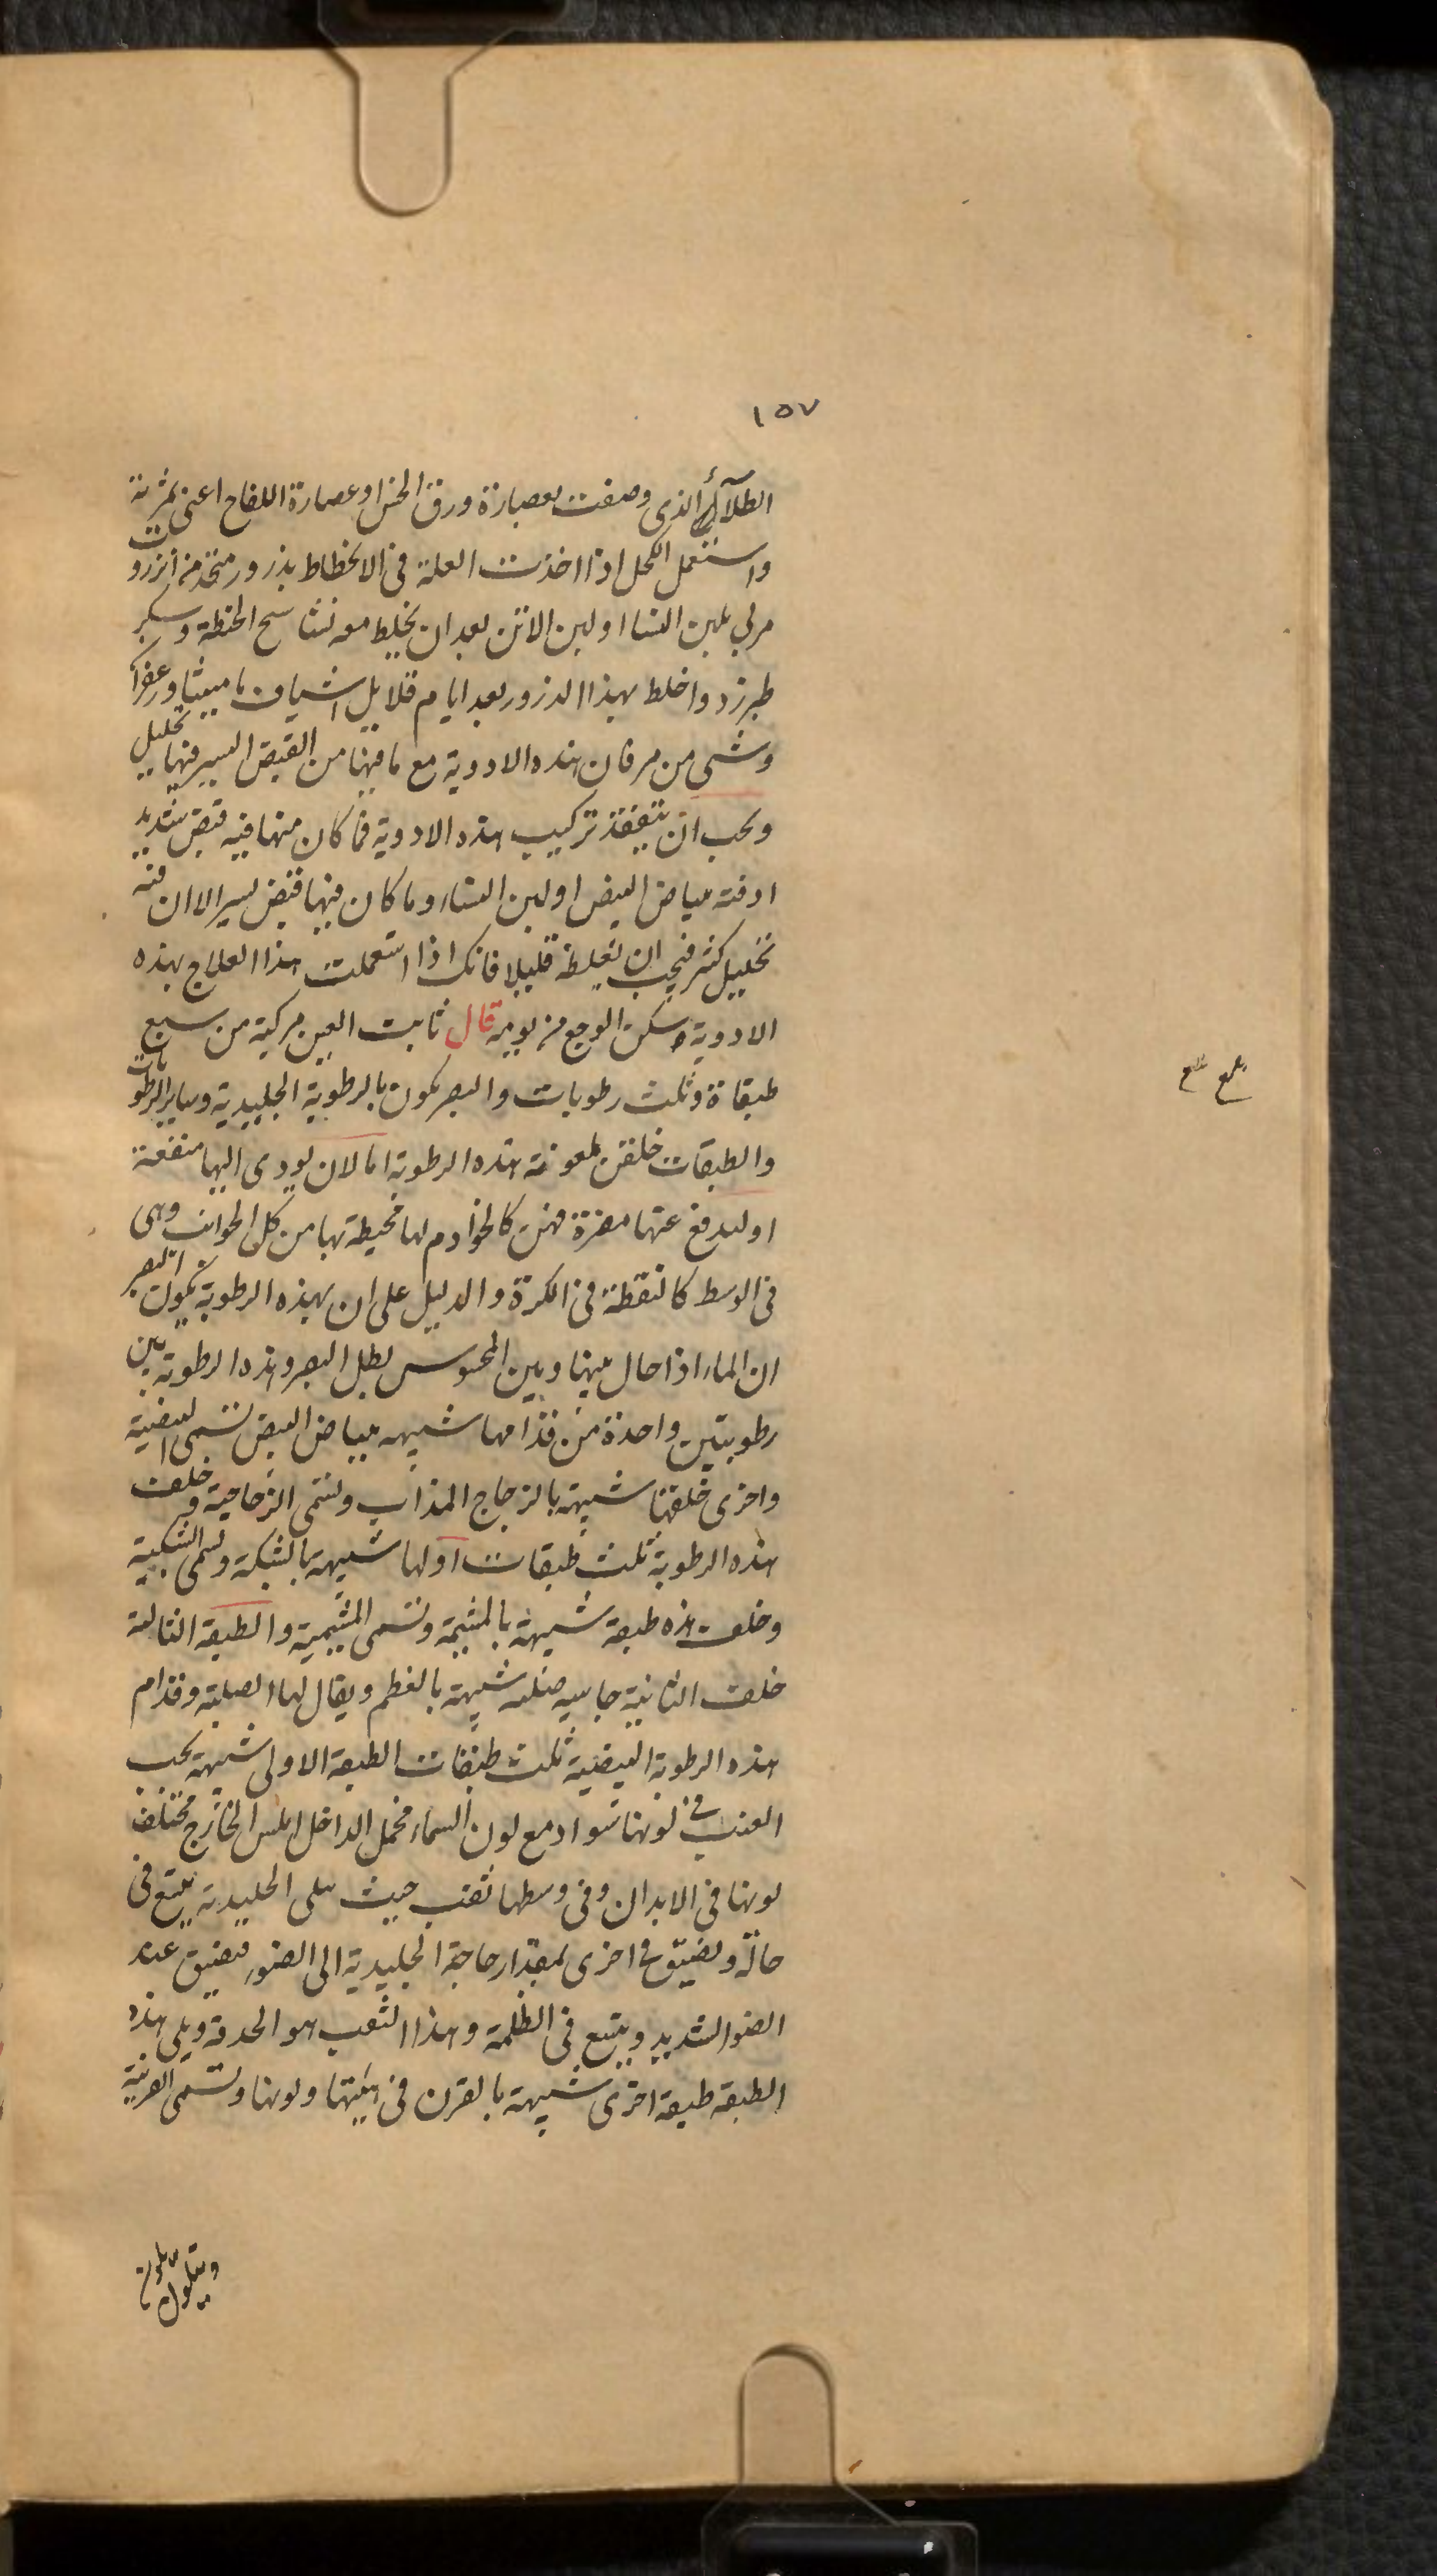 ١٥٧
الطلآء الذى وصفت بعصارة ورق الخس او عصارة اللفاح اعنى ثمرته
واستعمل الكحل اذا اخذت العلة فى الانحطاط بذرور متخذ من انزروت
مربي بلبن النسا او لبن الاتن بعد ان يخلط معه نشاستج الحنطة وسكر
طبرزد واخلط بهذا الذرور بعد ايام قلايل اشياف ماميثا وزعفرا
وشى من مر فان هذه الادوية مع ما فيها من القبض اليسير فيها تحليل
ويجب ان يتفقد تركيب هذه الادوية فما كان منها فيه قبض شديد
ادفته ببياض البيض او لبن النساء وما كان فيها قبض يسير الا ان فيه
تحليل كثير فيجب ان يغلظه قليلا فانك اذا استعملت هذا العلاج بهذه
الادوية سكن الوجع من يومه قال ثابت العين مركبة من سبع
طبقاة وثلث رطوبات والبصر يكون بالرطوبة الجليدية وساير الرطوبات
والطبقات خلقن لمعونة هذه الرطوبة اما لان يودى اليها منفعة
او ليدفع عنها مضرة فهن كالخوادم لها محيطة بها من كل الجوانب وهى
فى الوسط كالنقطة فى الكرة والدليل على ان بهذه الرطوبة يكون البصر
ان الماء اذا حال بينها وبين المحسوس بطل البصر وهذه الرطوبة بين
رطوبتين واحدة من قدامها شبيهه ببياض البيض تسمى البيضية
واخرى خلفها شبيهة بالزجاج المذاب وتسمى الزجاجية وخلف
هذه الرطوبة ثلث طبقات اولها شبيهة بالشبكة وتسمى الشبكية
وخلف هذه طبقة شبيهة بالمشيمة وتسمى المشيمية والطبقة الثالثة
خلف الثانية جاسيه صلبه شبيهة بالعظم ويقال لها الصلبة وقدام
هذه الرطوبة البيضية ثلث طبقات الطبقة الاولى شبيهة بحب
العنب فى لونها سواد مع لون السماء مخمل الداخل املس الخارج مختلف
لونها فى الابدان وفى وسطها ثقب حيث يلى الجليدية يتسع فى
حالة ويضيق فى اخرى بمقدار حاجة الجليدية الى الضوء فيضيق عند
الضو الشديد ويتسع فى الظلمة وهذا الثقب هو الحدقة ويلى هذه
الطبقة طبقة اخرى شبيهة بالقرن فى هيئتها ولونها وتسمى القرنية